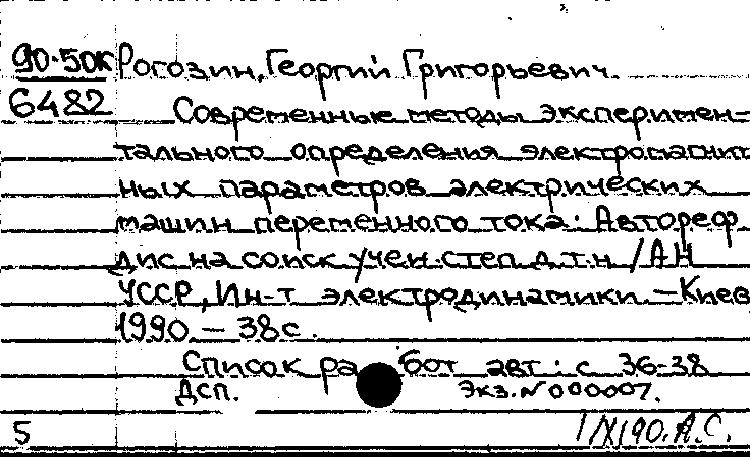 90-50к Рогозин, Георгий Григорьевич.
6482 Современные методы эксперимен-
тального определения электромагнит
ных параметров электрических
машин переменного тока: Автореф
дис на соиск учен. степ д.т.н / АН
УССР, Ин-т электродинамики. – Киев
1990. – 38с.
Список работ авт.: с 36-38
ДСП. Экз. N 000007.
5 1/XI90. А.С.